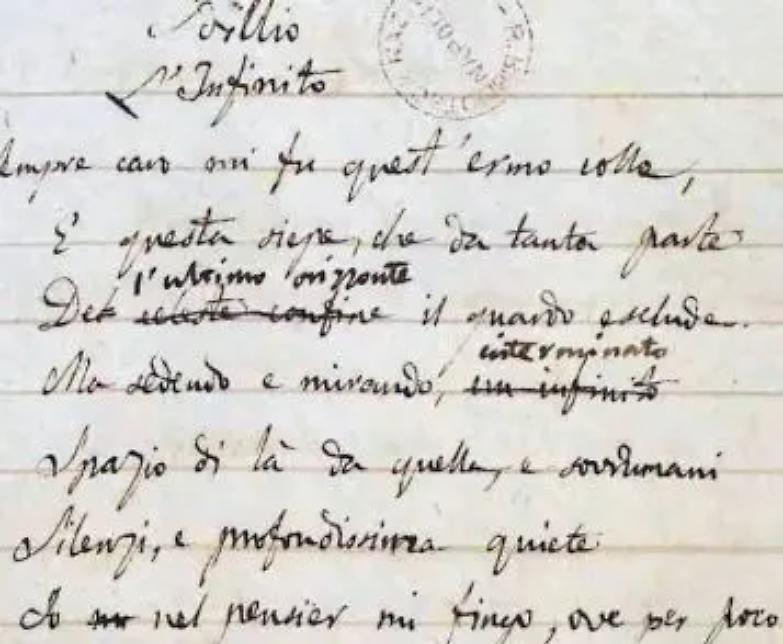 Idillio
L'Infinito
Sempre caro mi fu quest'ermo colle,
E questa siepe, che da tanta parte
l'ultimo orizzonte
Del celeste confine il guardo esclude.
interminato
Ma sedendo e mirando, un infinito
Spazio di là da quella, e sovrumani
Silenzi, e profondissima quiete
Io nel pensier mi fingo, ove per poco